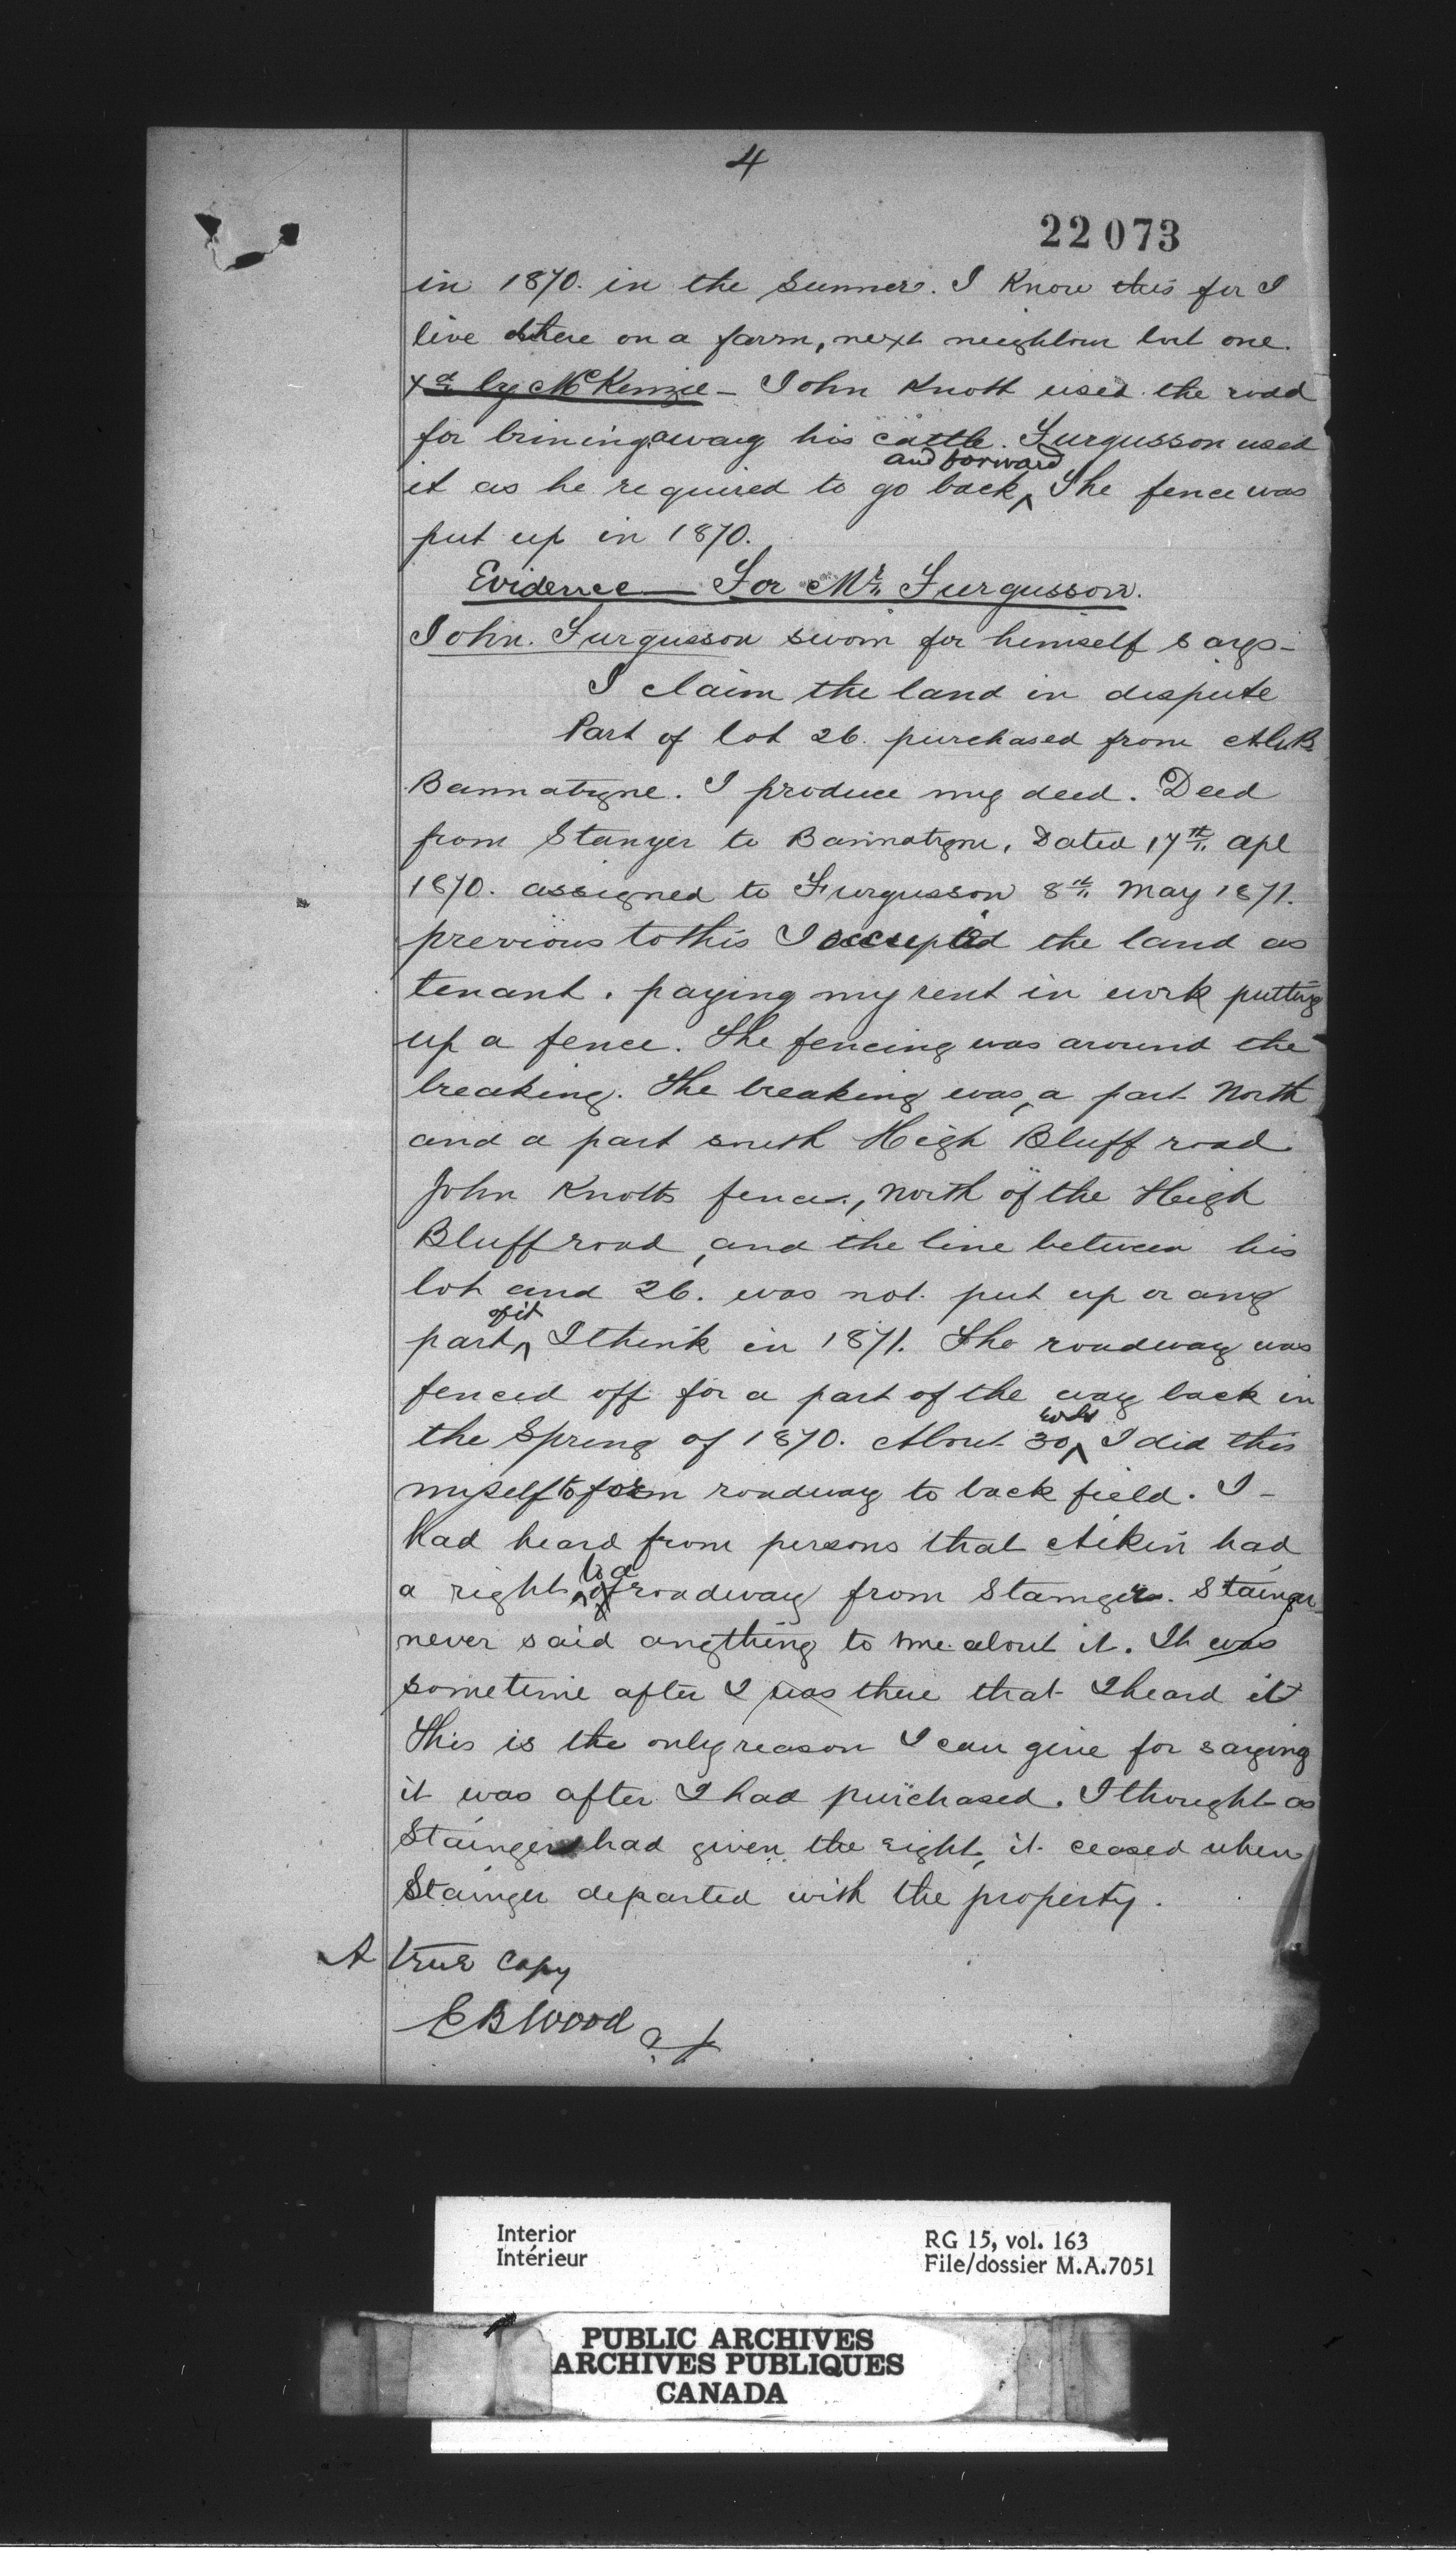 4
22073
in 1870. in the Summer. I Know this for I
live there on a farm, next neighbour but one.
Xd by McKenzie - John Knott used the road
for brining away his cattle. Furgusson used
it as he required to go back and forward The fence was
put up in 1870.
Evidence - For Mr. Furgusson.
John. Furgusson sworn for himself says -
I claim the land in dispute
Part of lot 26. purchased from
Bannatyne. I produce my deed. Deed
from Stanger to Bannatyne, Dated 17th apl
1870. assigned to Furgusson 8th May 1871.
previous to this I occupied the land as
tenant. paying my rent in work putting
up a fence. The fencing was around the
breaking. The breaking was, a part North
and a part south High Bluff road
John Knotts fence, North of the High
Bluff road, and the line between his
lot and 26. was not put up or any
part of it I think in 1871. The roadway was
fenced off for a part of the way back in
the Spring of 1870. About 30 rods I did this
myself to form roadway to back field. I -
had heard from persons that Aikin had
a right to a roadway from Stainger. Stainger
never said anything to me about it. It was
sometime after I was there that I heard it
This is the only reason I can give for saying
it was after I had purchased. I thought as
Stainger had given the right, it ceased when
Stainger departed with the property.
A true Copy
E B Wood
Interior
Intérieur
RG 15, vol. 163
File/dossier M.A.7051
PUBLIC ARCHIVES
ARCHIVES PUBLIQUES
CANADA